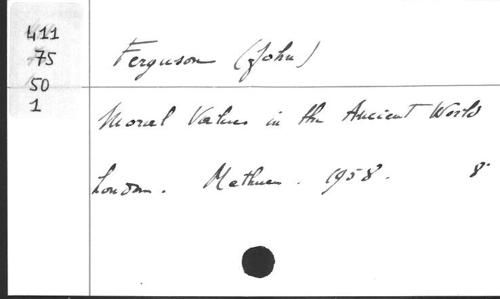 411
75
50
1
Ferguson (John)
Moral Values in the Ancient World
London. Methuen. 1958. 8°